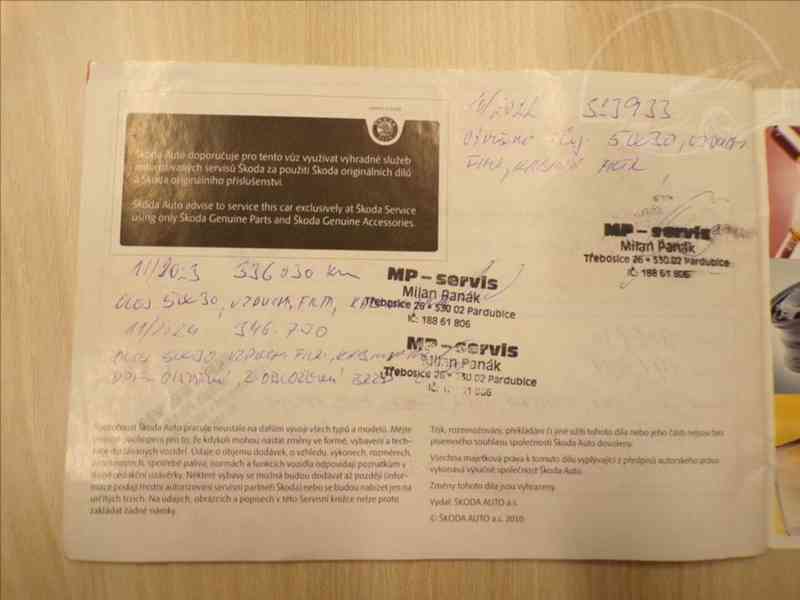 Škoda Auto doporučuje pro tento vůz využívat výhradně služeb
autorizovaných servisů Škoda za použití Škoda originálních dílů
a Škoda originálního příslušenství.
Škoda Auto advise to service this car exclusively at Škoda Service
using only Škoda Genuine Parts and Škoda Genuine Accessories.
323933
5W30, VZDUCH
MP-servis
Milan Panák
Třebosice 26 • 530 02 Pardubice
IČ: 188 61 806
11/2023 336030 km
OLEJ 5W30, VZDUCH, FILTR,
MP-servis
Milan Panák
Třebosice 26 • 530 02 Pardubice
IČ: 188 61 806
11/2024 346.700
OLEJ 5W30, VZDUCH FILTR,
MP-servis
Milan Panák
Třebosice 26 • 530 02 Pardubice
Společnost Škoda Auto pracuje neustále na dalším vývoji všech typů a modelů. Mějte
prosím pochopení pro to, že kdykoli mohou nastat změny ve formě, vybavení a tech-
nice dodávaných vozidel. Údaje o objemu dodávek, o vzhledu, výkonech, rozměrech,
hmotnostech, spotřebě paliva, normách a funkcích vozidla odpovídají poznatkům v
době redakční uzávěrky. Některé výbavy se možná budou dodávat až později (infor-
mace podají místní autorizovaní servisní partneři Škoda) nebo se budou nabízet jen na
určitých trzích. Na údajích, obrázcích a popisech v této Servisní knížce nelze proto
zakládat žádné nároky.
Tisk, rozmnožování, překládání či jiné užití tohoto díla nebo jeho částí nejsou bez
písemného souhlasu společnosti Škoda Auto dovoleny.
Všechna majetková práva k tomuto dílu vyplývající z předpisů autorského práva
vykonává výlučně společnost Škoda Auto.
Změny tohoto díla jsou vyhrazeny.
Vydal: ŠKODA AUTO a.s.
© ŠKODA AUTO a.s. 2010